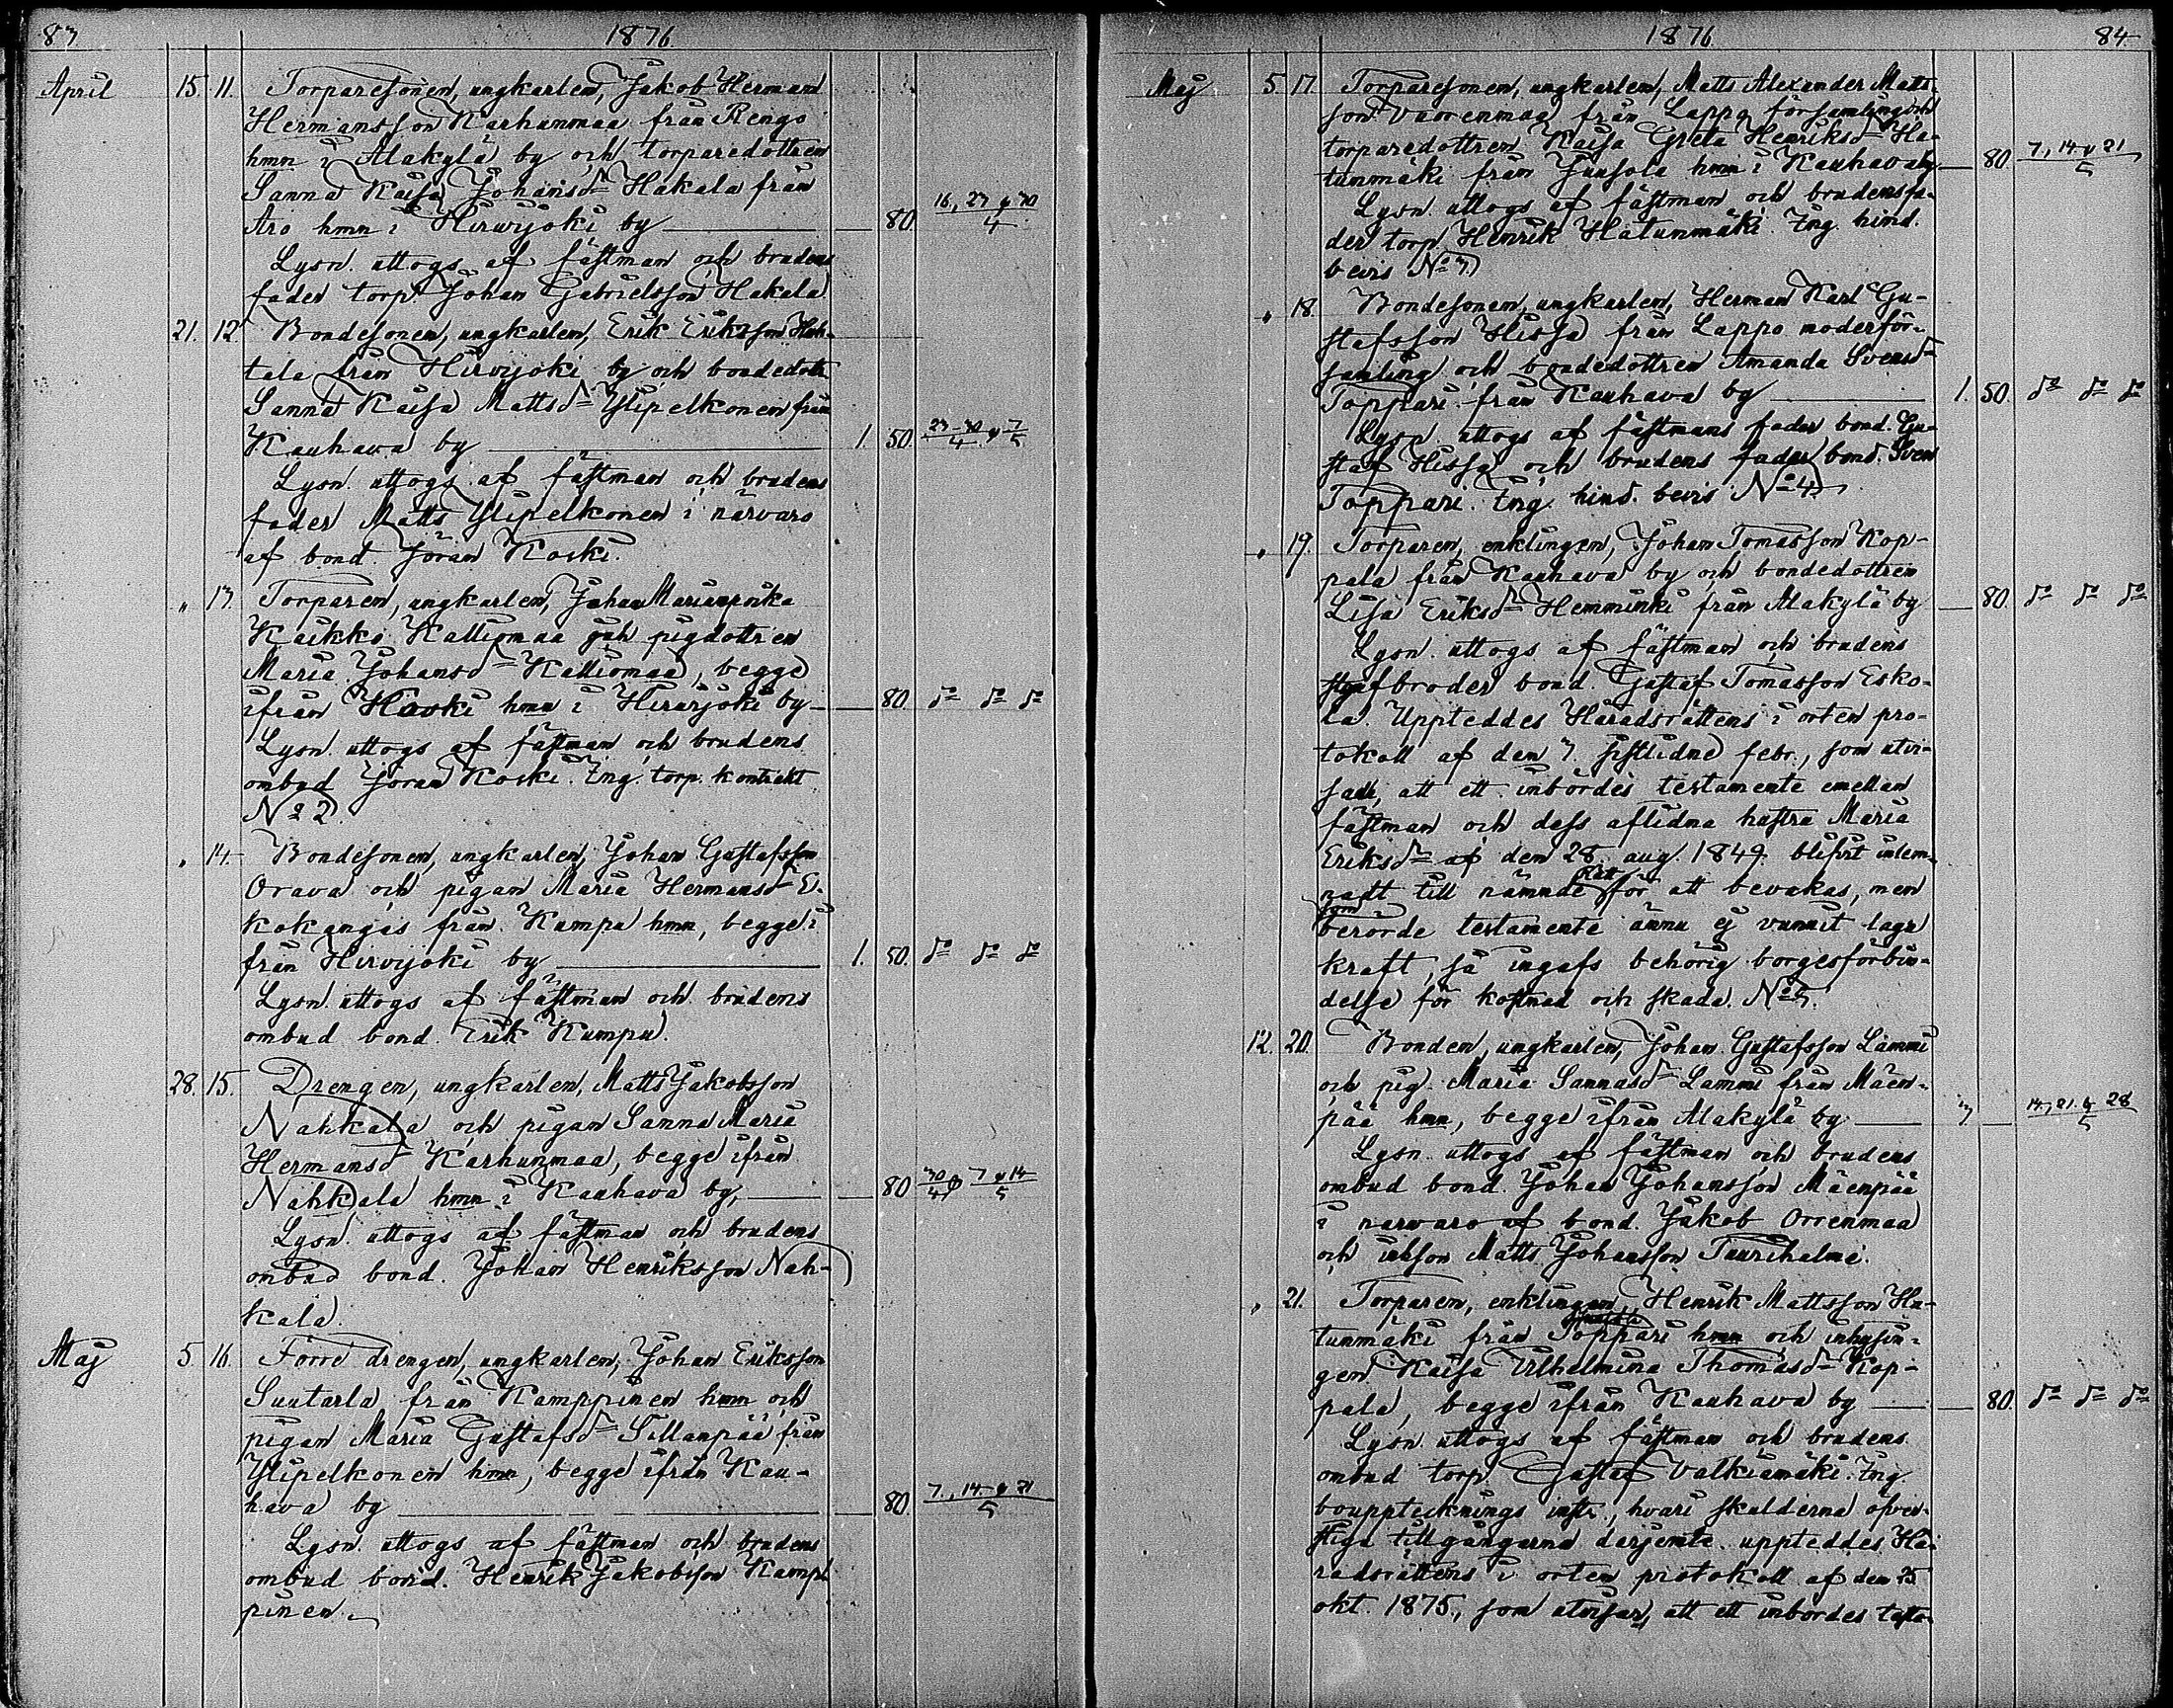 83 1876
April 15. 11. Torparesonen, ungkarlen, Jakob Herman
Hermansson Karhunmaa från Rengo
hmn i Alakylä by och torparedottren
Sanna Kaisa Johansd Hakala från
Aro hmn i Hirvijoki by — 80. 16, 23 & 30/4
Lysn. uttogs af fästman och brudens
fader torp. Johan Gabrielsson Hakala
21. 12. Bondesonen, ungkarlen, Erik Eriksson Huh-
tala från Hirvijoki by och bondedottr.
Sanna Kaisa Mattsd Ylipelkonen från
Kauhava by — 1. 50. 23-30/4 & 7/5
Lysn. uttogs af fästman och brudens
fader Matts Ylipelkonen i närvaro
af bond. Jöran Koski.
" 13. Torparen, ungkarlen, Johan
Kaikko Kalliomaa och pigdottren
Maria Johansd Kalliomaa, begge
ifrån Koski hmn i Hirvijoki by — 80. do do do
Lysn. uttogs af fästman och brudens
ombud Jöran Koski. Ing. torp. kontrakt
No 2.
" 14. Bondesonen, ungkarlen, Johan Gustafsson
Orava och pigan Maria Hermansd E-
kokangas från Kumpu hmn, begge i
från Hirvijoki by — 1. 50. do do do
Lysn. uttogs af fästman och brudens
ombud bond. Erik Kumpu.
28. 15. Drengen, ungkarlen, Matts Jakobsson
Nahkala och pigan Sanna Maria
Hermansd Karhunmaa, begge ifrån
Nahkala hmn i Kauhava by, — 80 30/4 & 7 & 14/5
Lysn. uttogs af fästman och brudens
ombud bond. Johan Henriksson Nah-
kala.
Maj 5. 16. Förre drengen, ungkarlen, Johan Eriksson
Suutarla från Kamppinen hmn och
pigan Maria Gustafsd Sillanpää från
Ylipelkonen hmn, begge ifrån Kau-
hava by — 80. 7, 14 & 21/5
Lysn. uttogs af fästman och brudens
ombud bond. Henrik Jakobsson Kamp-
pinen.
1876 84
Maj 5. 17. Torparesonen, ungkarlen, Matts Alexander Matts-
son Vuorenmaa från Lappo församling och
torparedottren Kaisa Greta Henriksd Ha-
tunmäki från Juusola hmn i Kauhava by — 80. 7, 14 & 21/5
Lysn. uttogs af fästman och brudens fa-
der torp. Henrik Hatunmäki. Ing. hind.
bevis No 3.
" 18. Bondesonen, ungkarlen, Herman Karl Gu-
stafsson Hissa från Lappo moderför-
samling och bondedottren Amanda Svensd
Toppari från Kauhava by — 1. 50. do do do
Lysn. uttogs af fästmans fader bond. Gu-
staf Hissa och brudens fader bond. Sven
Toppari. Ing. hind. bevis No 4.
" 19. Torparen, enklingen, Johan Tomasson Kop-
pala från Kauhava by och bondedottren
Lisa Eriksd Hemminki från Alakylä by — 80. do do do
Lysn. uttogs af fästman och brudens
styfbroder bond. Gustaf Tomasson Esko-
la. Uppteddes Häradsrättens i orten pro-
tokoll af den 7. sistlidne febr., som utvi-
sade, att ett inbördes testamente emellan
fästman och dess aflidna hustru Maria
Eriksd af den 28. aug. 1849 blifvit inlem-
nadt till nämnde Rätt för att bevakas, men
som
berörde testamente ännu ej vunnit laga
kraft, så ingafs behörig borgesförbin-
delse för kostnad och skada. No 5.
12. 20. Bonden, ungkarlen, Johan Gustafsson Lammi
och pig. Maria Sannasd Lammi från Mäen-
pää hmn, begge ifrån Alakylä by — 3. — 14, 21 & 28/5
Lysn. uttogs af fästman och brudens
ombud bond. Johan Johansson Mäenpää
i närvaro af bond. Jakob Orrenmaa
och Matts Johansson Tuurihalme.
" 21. Torparen, enklingen, Henrik Mattsson Ha-
tunmäki från Toppari hmn och inhysin-
gen Kaisa Vilhelmina Thomasd Kop-
pala, begge ifrån Kauhava by — 80. do do do
Lysn. uttogs af fästman och brudens
ombud torp. Gustaf Valkiamäki. Ing.
bouppteknings instr., hvari skulderna öfver-
stiga tillgångarna derjemte uppteddes Hä-
radsrättens i orten protokoll af den 25
okt. 1875, som utvisar, att ett inbördes testa-